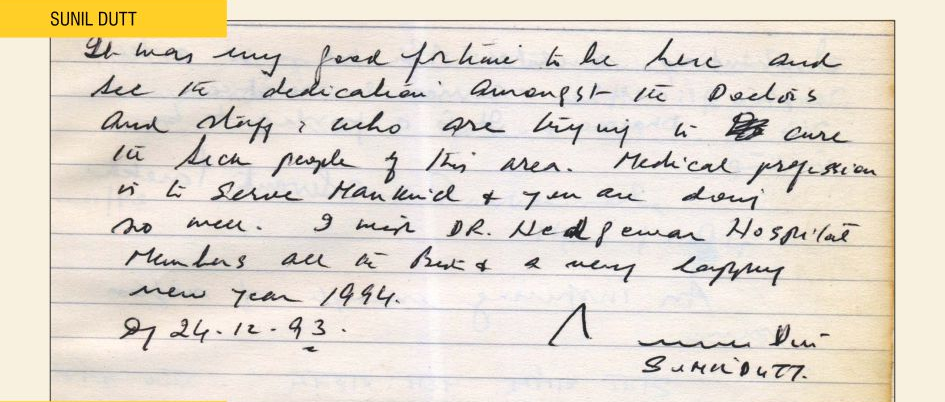 SUNIL DUTT
It was my good fortune to be here and
see the dedication amongst the Doctors
and staff; who are trying to cure
the sick people of this area. Medical profession
is to serve Mankind & you are doing
so well. I wish DR. Hedgewar Hospital
Members all the Best & a very happy
new year 1994.
24.12.93.
Sunil Dutt
SUNIL DUTT.